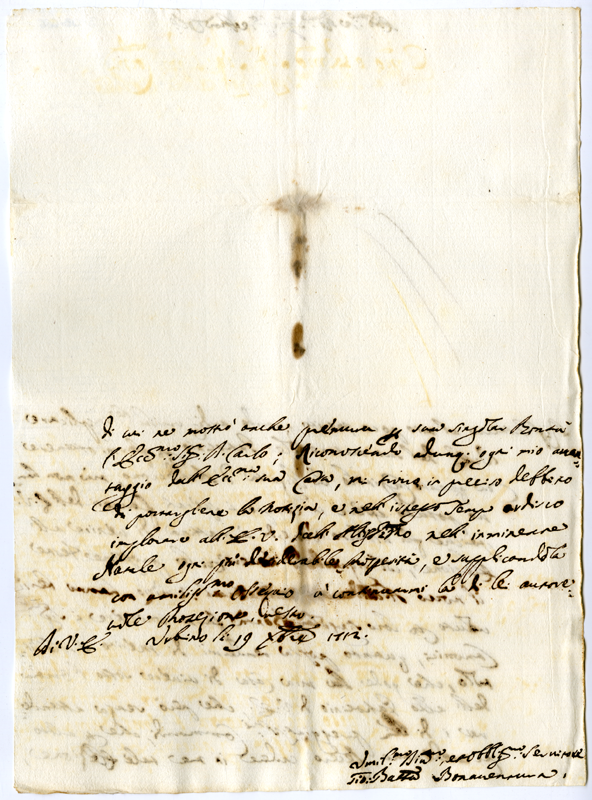 di cui ne mostrò anche premura per sua singolar Bontà
l'Ecc.mo Sig. D. Carlo; Riconoscendo adunq. ogni mio avan=
taggio dall'Ecc.ma sua Casa, mi trovo in preciso debbito
di porgergliene la notizia, e nell'istesso tempo ardisco
implorare all'E. V. dall'Altissimo nell'imminente
Natale ogni più desiderabile prosperità, e supplicandola
con umiliss.mo ossequio à continuarmi la di lei autore=
vole Protezione resto
Di V. E. Urbino li 19 Xbre 1712.
Umil.mo Div.mo et obblig.mo Servitore
Gio: Batta Bonaventura